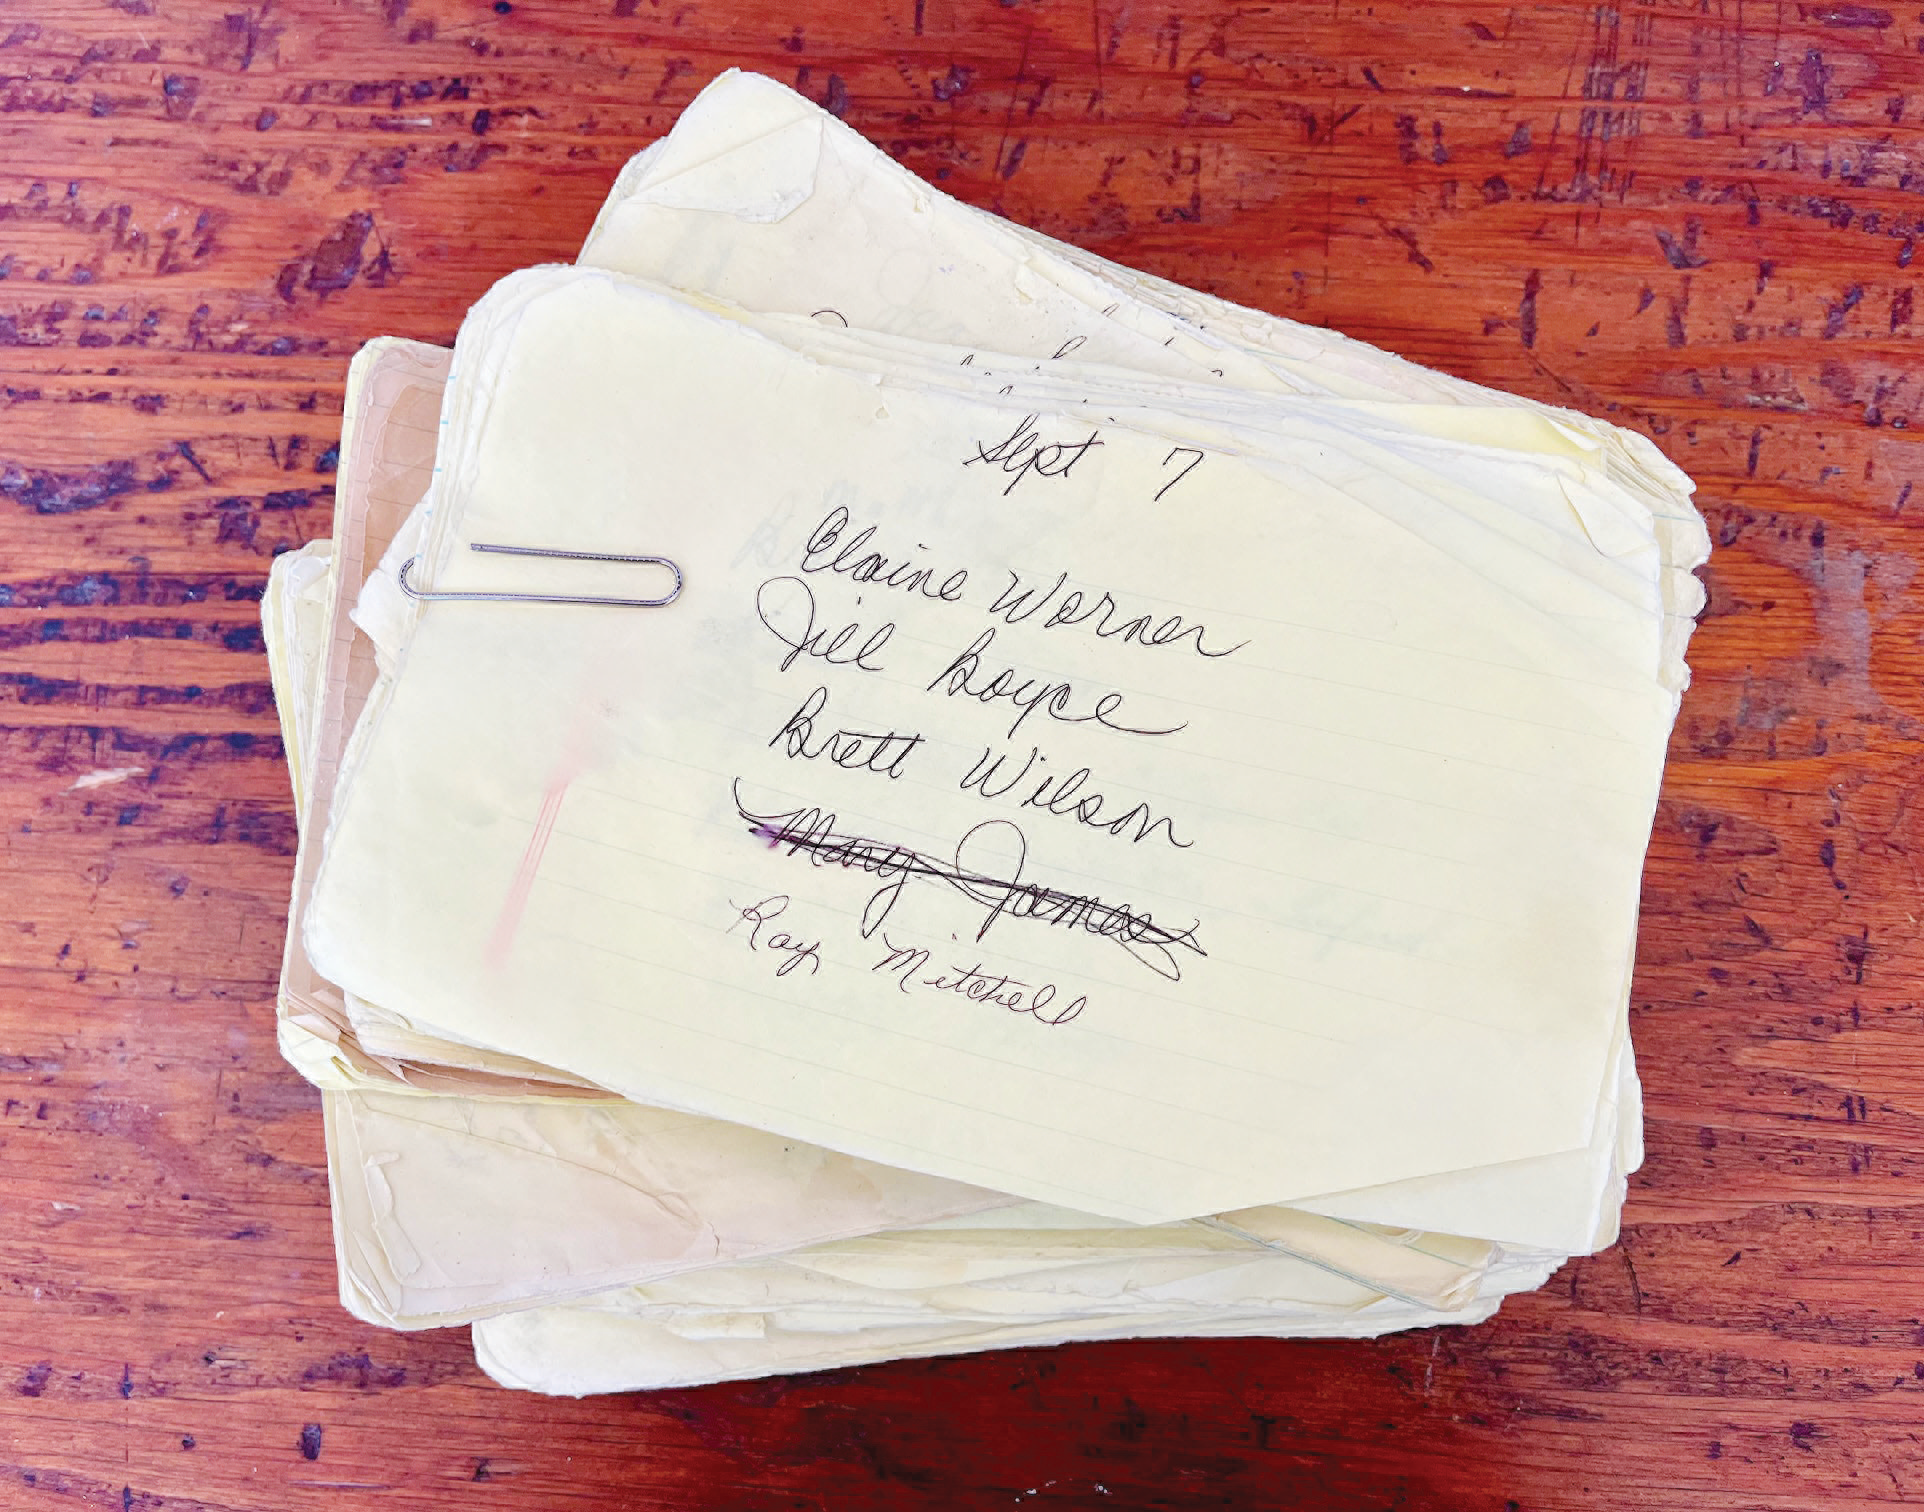 Sept 7
Elaine Warner
Jill Boyce
Brett Wilson
Mary James
Ray Mitchell